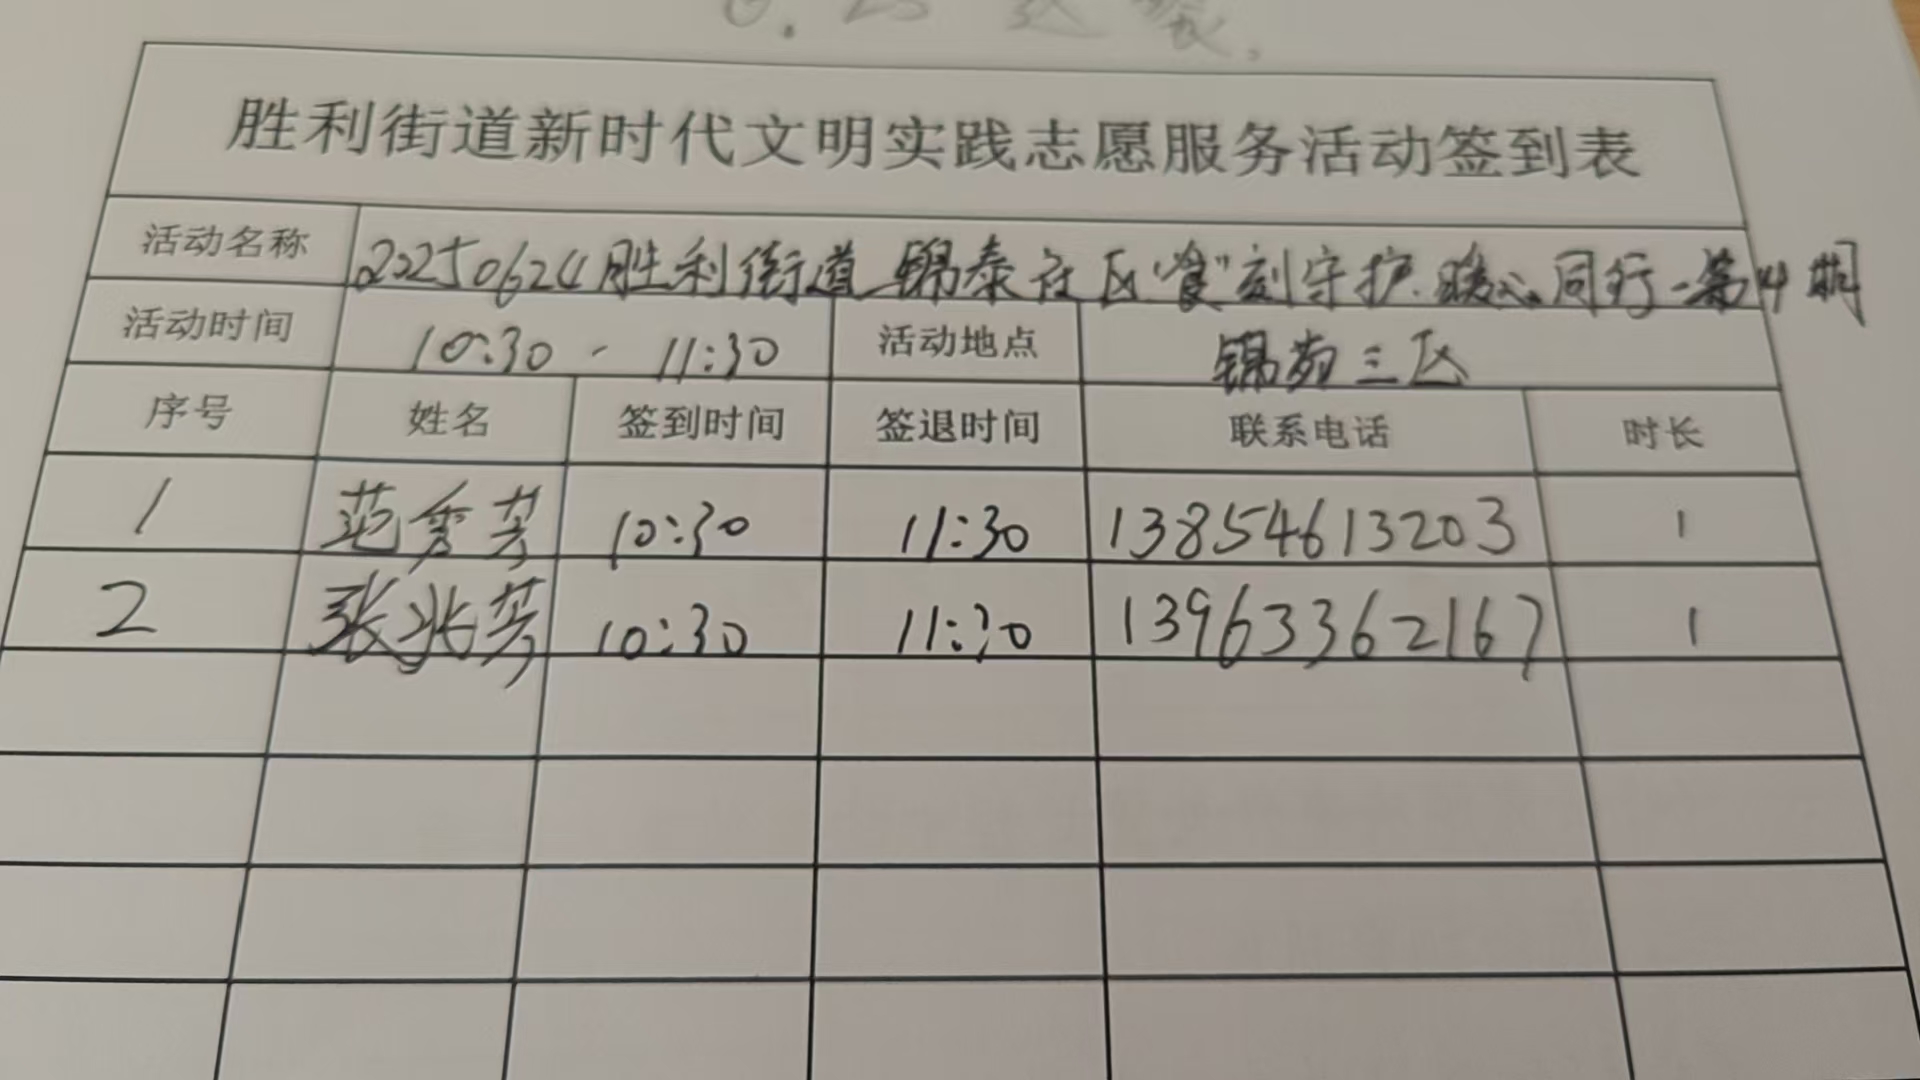 胜利街道新时代文明实践志愿服务活动签到表
活动名称 20250624胜利街道锦泰社区“食”刻守护.暖心同行-第4期
活动时间 10:30 - 11:30 活动地点 锦苑三区
序号 姓名 签到时间 签退时间 联系电话 时长
1 范秀芳 10:30 11:30 13854613203 1
2 张兆芳 10:30 11:30 13963362167 1